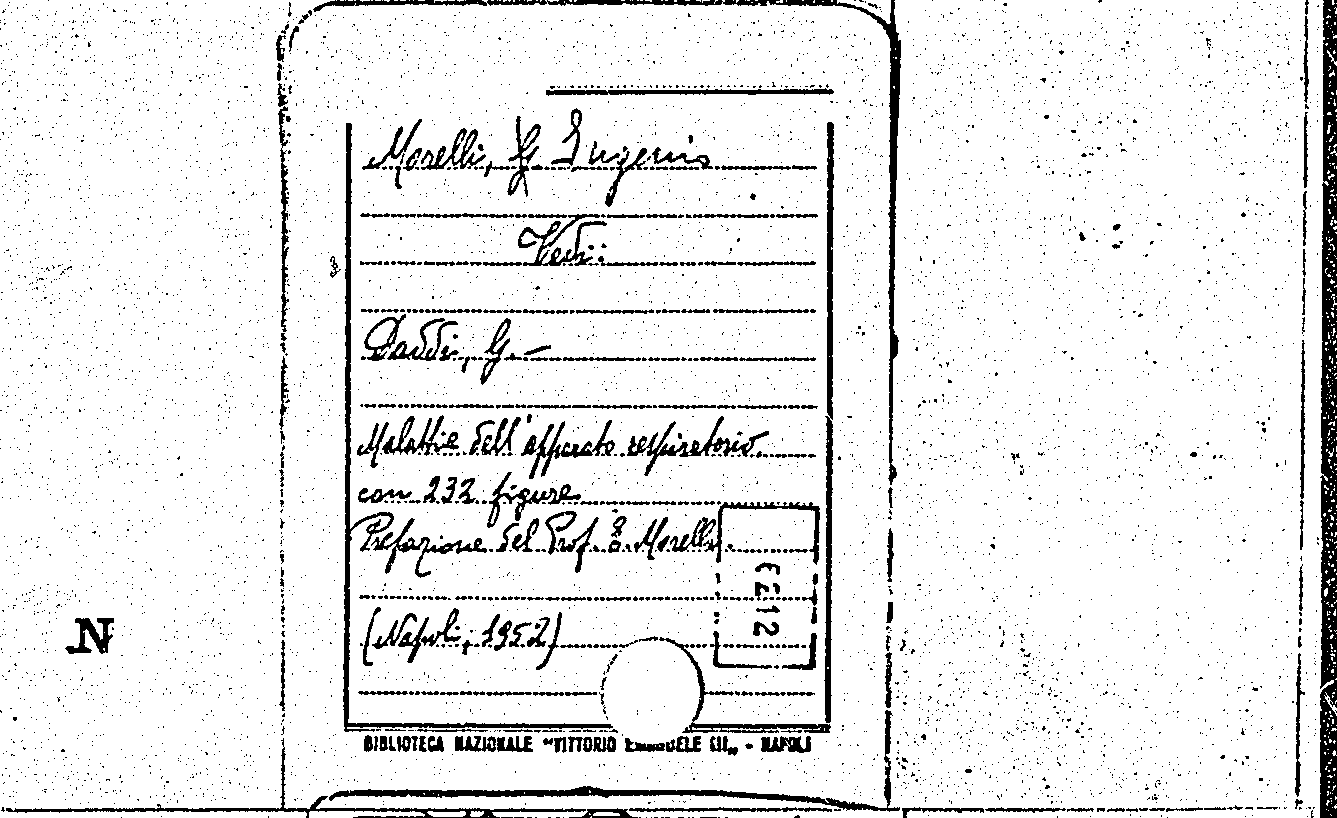 Morelli, Eugenio
Vedi:
Daddi, G. –
Malattie dell'apparato respiratorio.
con 232 figure.
Prefazione del Prof. E. Morelli.
(Napoli, 1952)
N
BIBLIOTECA NAZIONALE "VITTORIO EMANUELE III„ - NAPOLI